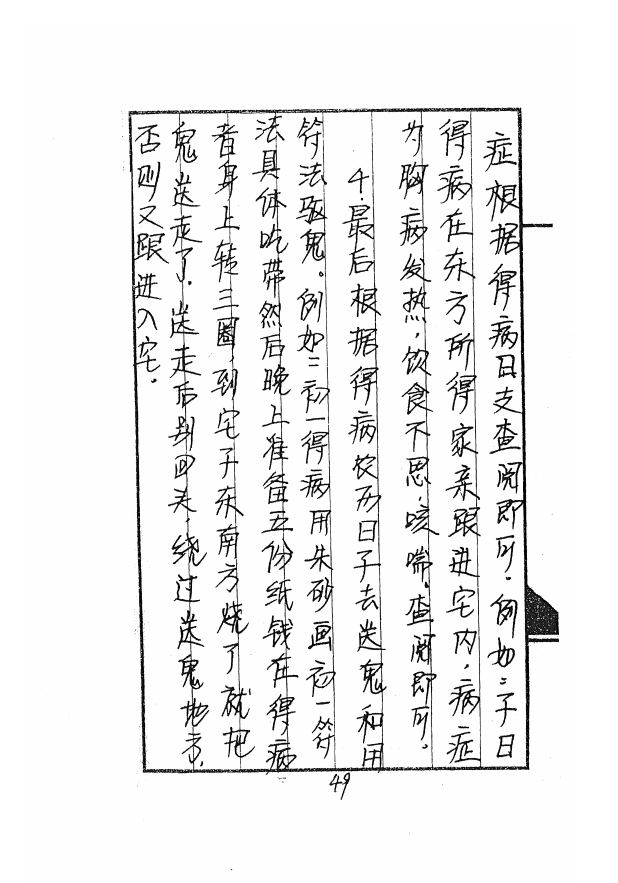 症根据得病日支查阅即可。例如：子日
得病在东方所得家亲跟进宅内，病症
为胸病发热，饮食不思，咳喘。查阅即可。
4.最后根据得病农历日子去送鬼和用
符法驱鬼。例如：初一得病用朱砂画初一符
法具体吃带然后晚上准备五份纸钱在得病
者身上转三圈，到宅子东南方烧了就把
鬼送走了，送走后别回头，绕过送鬼地方，
否则又跟进入宅。
49